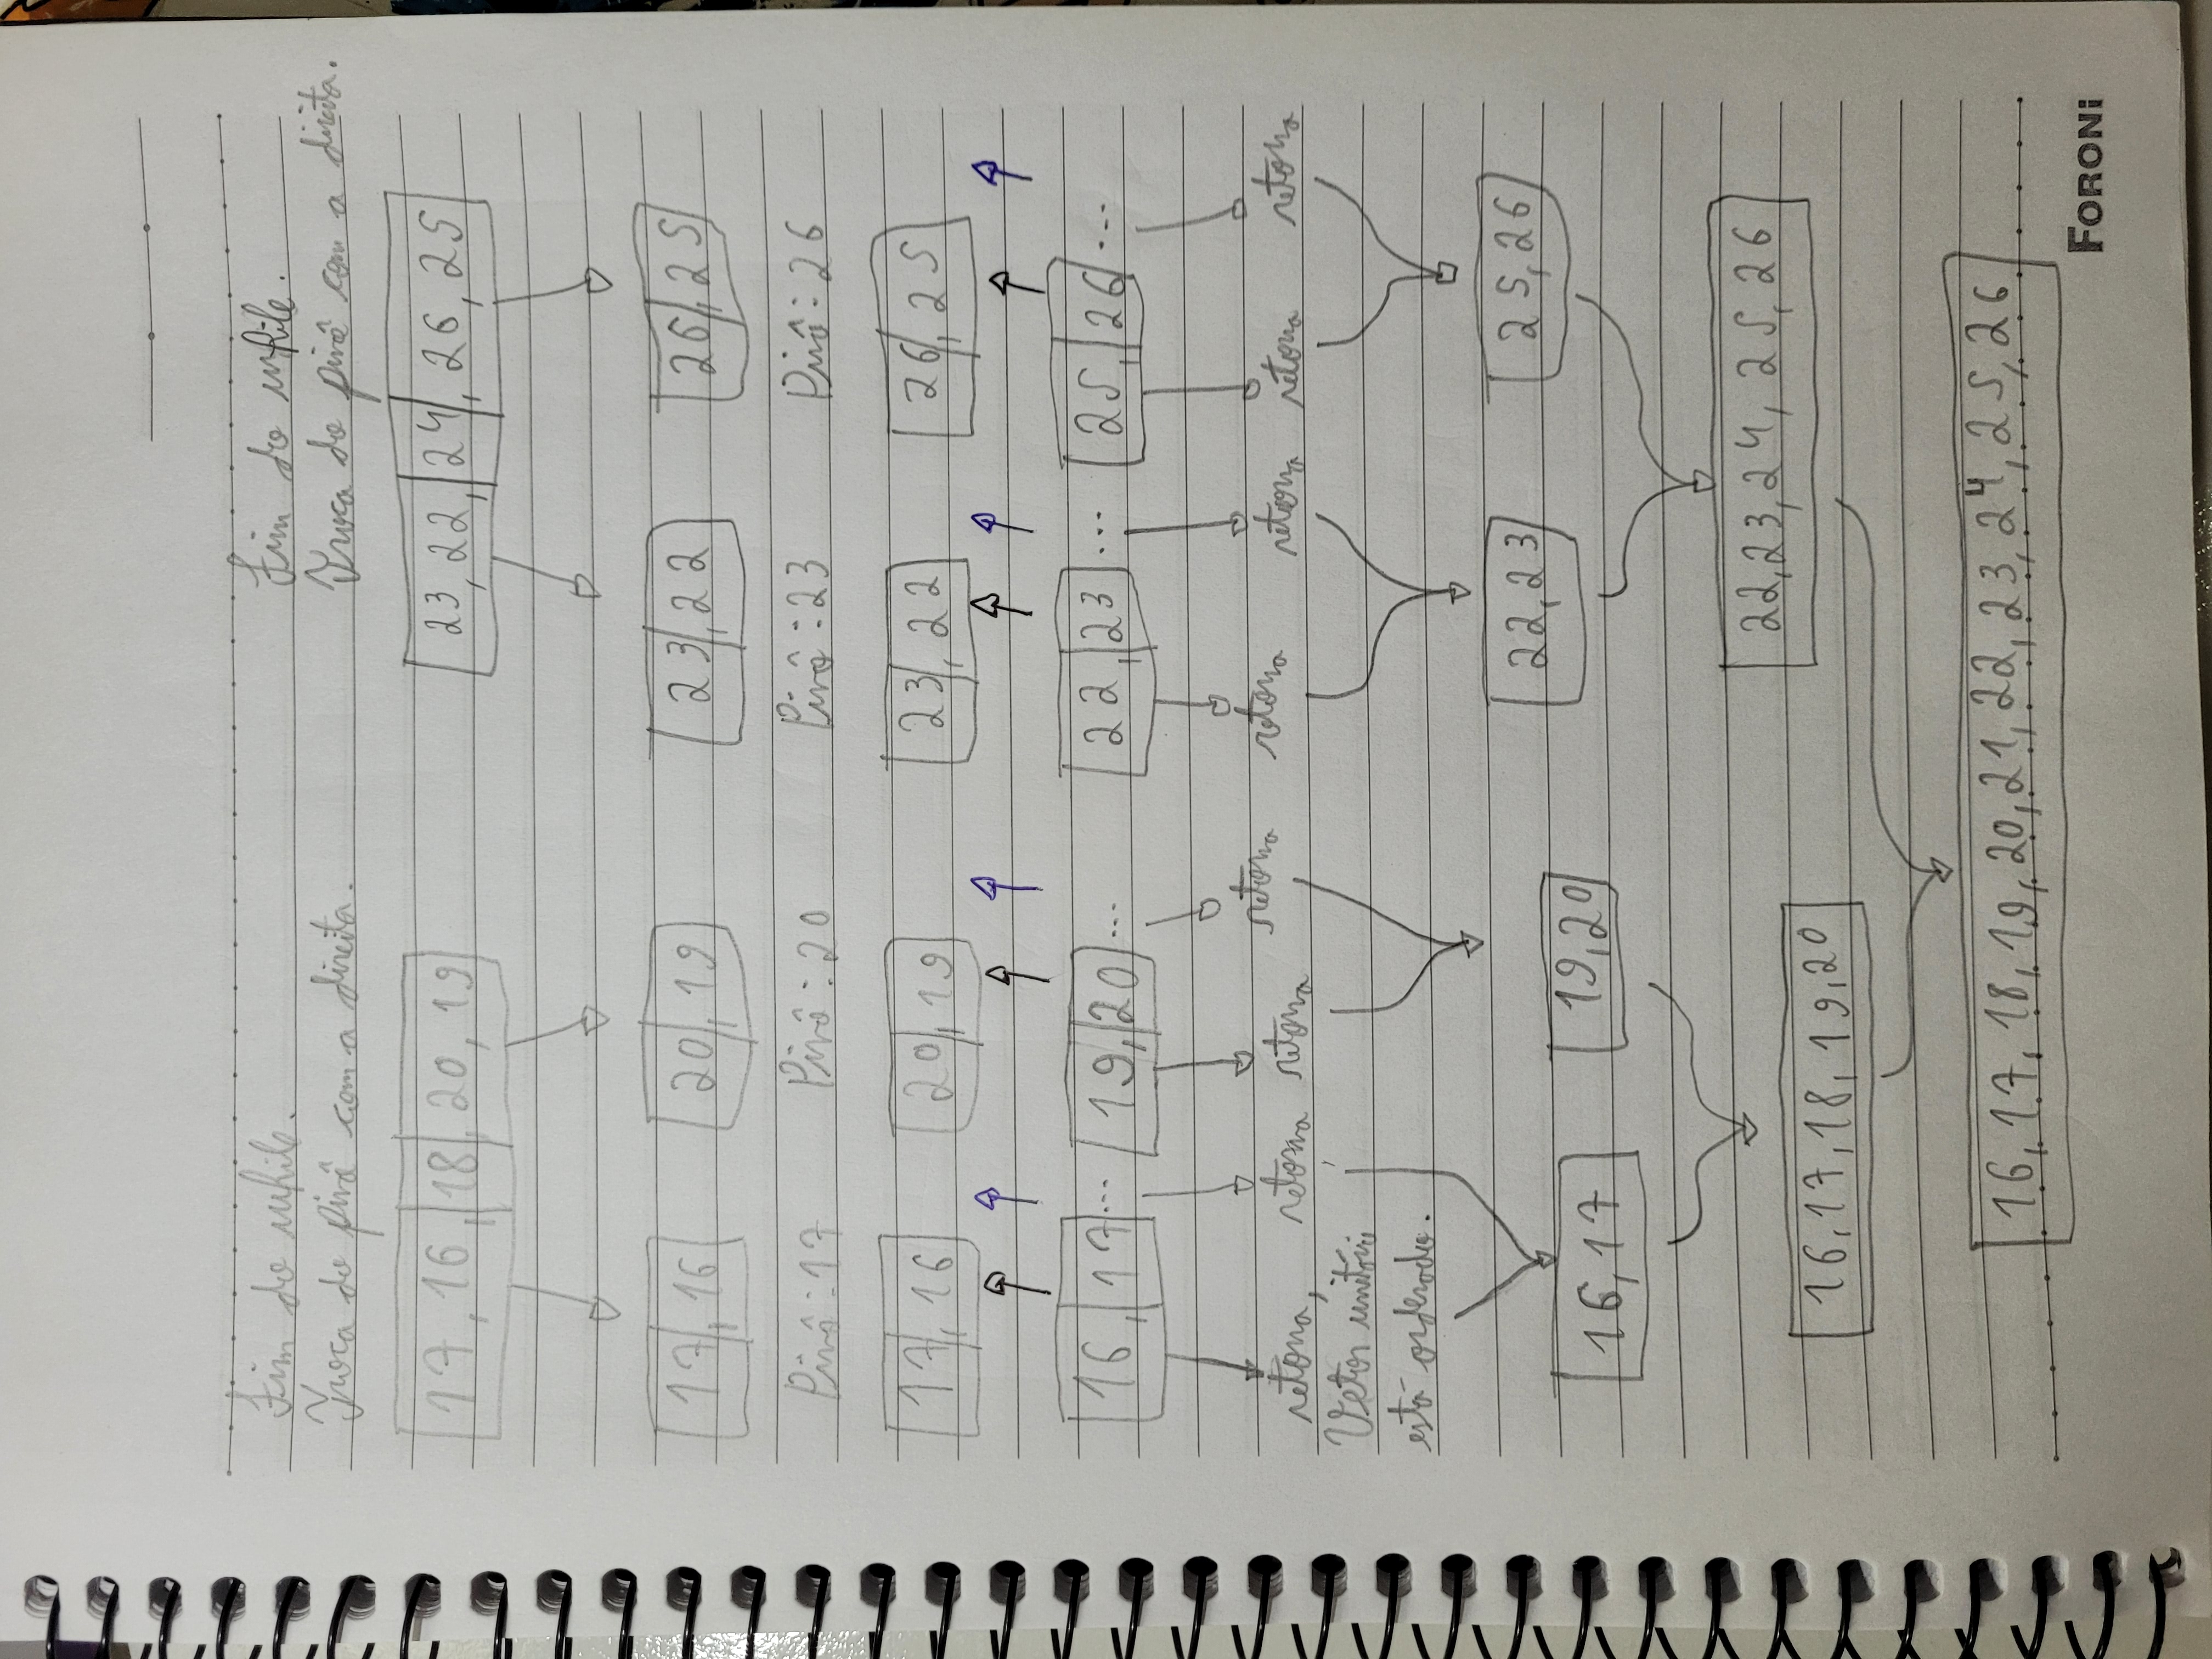 Fim do while. Fim do while.
Troca do pivô com a direita. Troca do pivô com a direita.
17, 16, 18, 20, 19 23, 22, 24, 26, 25
17, 16 20, 19 23, 22 26, 25
Pivô: 17 Pivô: 20 Pivô: 23 Pivô: 26
17, 16 20, 19 23, 22 26, 25
16, 17... 19, 20... 22, 23... 25, 26...
retorna, retorna retorna retorna retorna retorna retorna retorna
Vetor unitário
está ordenado.
16, 17 19, 20 22, 23 25, 26
22, 23, 24, 25, 26
16, 17, 18, 19, 20
16, 17, 18, 19, 20, 21, 22, 23, 24, 25, 26
FORONI